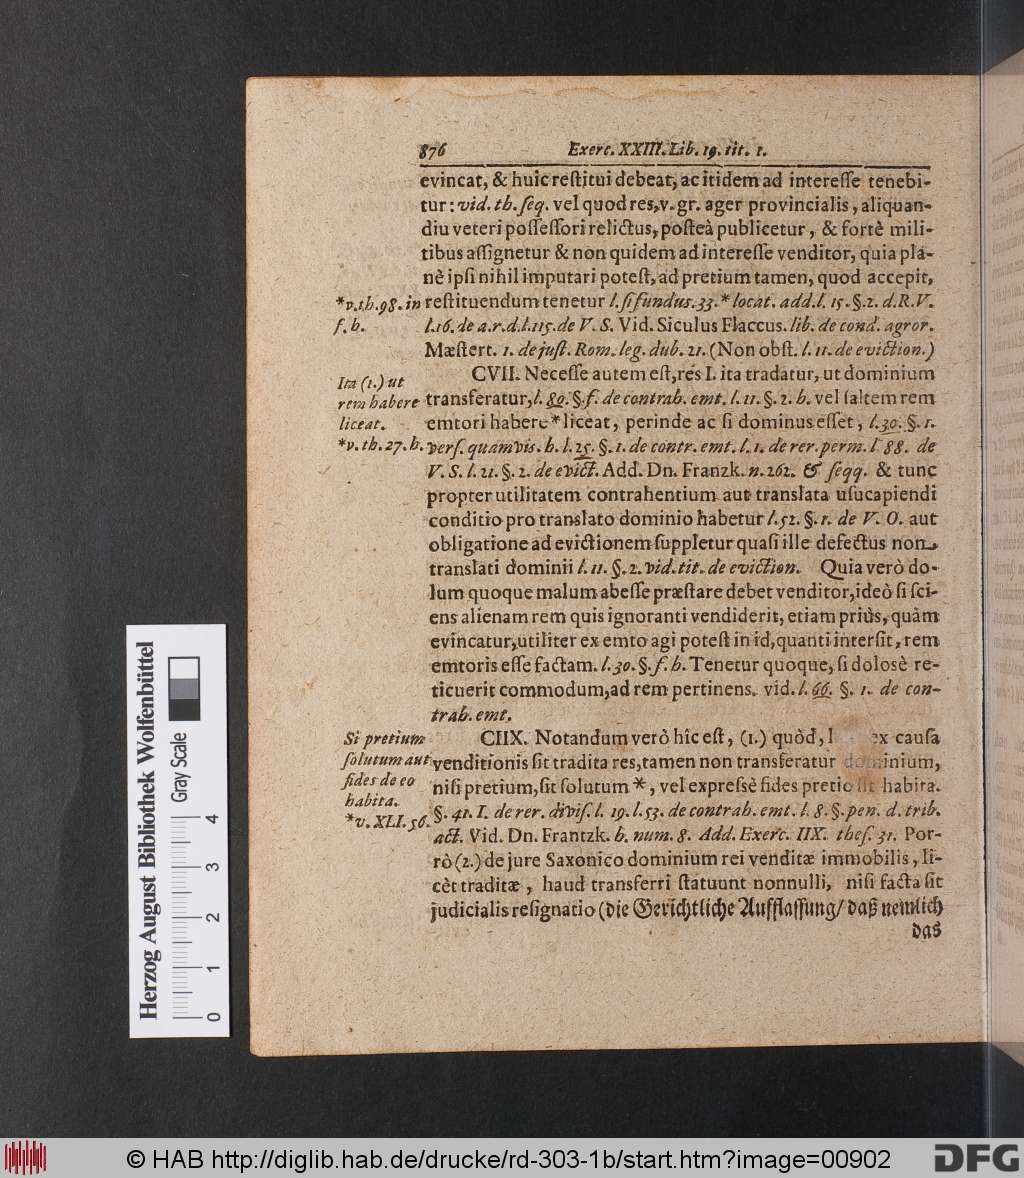 876 Exerc. XXIII. Lib. 19. tit. 1.
evincat, & huic restitui debeat, ac itidem ad interesse tenebi-
tur: vid. th. seq. vel quod res, v. gr. ager provincialis, aliquan-
diu veteri possessori relictus, posteà publicetur, & fortè mili-
tibus assignetur & non quidem ad interesse venditor, quia pla-
nè ipsi nihil imputari potest, ad pretium tamen, quod accepit,
*v. th. 98. in
f. h.
restituendum tenetur l. si fundus. 33. * locat. add. l. 15. §. 2. d. R. V.
l. 16. de a. r. d. l. 115. de V. S. Vid. Siculus Flaccus. lib. de cond. agror.
Mæstert. 1. de just. Rom. leg. dub. 21. (Non obst. l. 11. de eviction.)
Ita (1.) ut
rem habere
liceat.
*v. th. 27. h.
CVII. Necesse autem est, res I. ita tradatur, ut dominium
transferatur, l. 80. §. f. de contrah. emt. l. 11. §. 2. h. vel saltem rem
emtori habere * liceat, perinde ac si dominus esset, l. 30. §. 1.
vers. quamvis. h. l. 25. §. 1. de contr. emt. l. 1. de rer. perm. l 88. de
V. S. l. 21. §. 2. de evict. Add. Dn. Franzk. n. 262. & seqq. & tunc
propter utilitatem contrahentium aut translata usucapiendi
conditio pro translato dominio habetur l. 52. §. 1. de V. O. aut
obligatione ad evictionem suppletur quasi ille defectus non
translati dominii l. 11. §. 2. vid. tit. de eviction. Quia verò do-
lum quoque malum abesse præstare debet venditor, ideò si sci-
ens alienam rem quis ignoranti vendiderit, etiam priùs, quàm
evincatur, utiliter ex emto agi potest in id, quanti intersit, rem
emtoris esse factam. l. 30. §. f. h. Tenetur quoque, si dolosè re-
ticuerit commodum, ad rem pertinens. vid. l. 66. §. 1. de con-
trah. emt.
Si pretium
solutum aut
fides de eo
habita.
*v. XLI. 56.
CIIX. Notandum verò hîc est, (1.) quòd, l ex causa
venditionis sit tradita res, tamen non transferatur dominium,
nisi pretium, sit solutum *, vel expressè fides pretio sit habita.
§. 41. I. de rer. divis. l. 19. l. 53. de contrah. emt. l. 8. §. pen. d. trib.
act. Vid. Dn. Frantzk. h. num. 8. Add. Exerc. IIX. thes. 31. Por-
rò (2.) de jure Saxonico dominium rei venditæ immobilis, li-
cèt traditæ, haud transferri statuunt nonnulli, nisi facta sit
judicialis resignatio (die Gerichtliche Aufflassung/ daß nemlich
das
Herzog August Bibliothek Wolfenbüttel
Gray Scale
0 1 2 3 4
© HAB http://diglib.hab.de/drucke/rd-303-1b/start.htm?image=00902
DFG